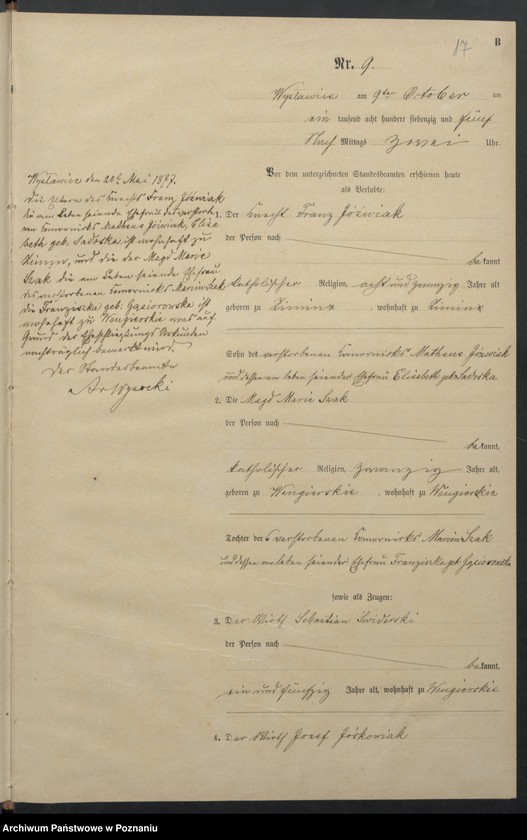 17
B
Nr. 9.
Wyslawice am 9ten October ten
ein tausend acht hundert siebenzig und fünf
Nach Mittags zwei Uhr.
Vor dem unterzeichneten Standesbeamten erschienen heute
als Verlobte:
1. Der Knecht Franz Jóźwiak
der Person nach
bekannt
katholischer Religion, acht und zwanzig Jahre alt
geboren zu Zimin, wohnhaft zu Zimin
Sohn des verstorbenen Komorniks Matheus Jóźwiak
und dessen am leben seiender Ehefrau Elisabeth geb. Sadoska
2. Die Magd Marie Szak
der Person nach
bekannt,
katholischer Religion, zwanzig Jahre alt,
geboren zu Wengierskie, wohnhaft zu Wengierskie
Tochter des verstorbenen Komorniks Marcin Szak
und dessen am leben seiender Ehefrau Franziska geb. Gąsiorowska
sowie als Zeugen:
3. Der Wirth Sebastian Swiderski
der Person nach
bekannt,
ein und fünfzig Jahre alt, wohnhaft zu Wengierskie
4. Der Wirth Josef Jóśkowiak
Wyslawice den 20t Mai 1877.
Die Eltern des Knechts Franz Jóźwiak
die am Leben seiende Ehefrau des verstorbe-
nen Komorniks Matheus Jóźwiak, Elisa
beth geb. Sadoska, ist wohnhaft zu
Zimin, und die der Magd Marie
Szak die am Leben seiende Ehefrau
des verstorbenen Komorniks Marcin Szak
die Franziska geb. Gąsiorowska ist
wohnhaft zu Wengierskie was auf
Grund der Eheschließungs Urkunden
nachträglich bemerkt wird.
Der Standesbeamte
Wysocki
Archiwum Państwowe w Poznaniu